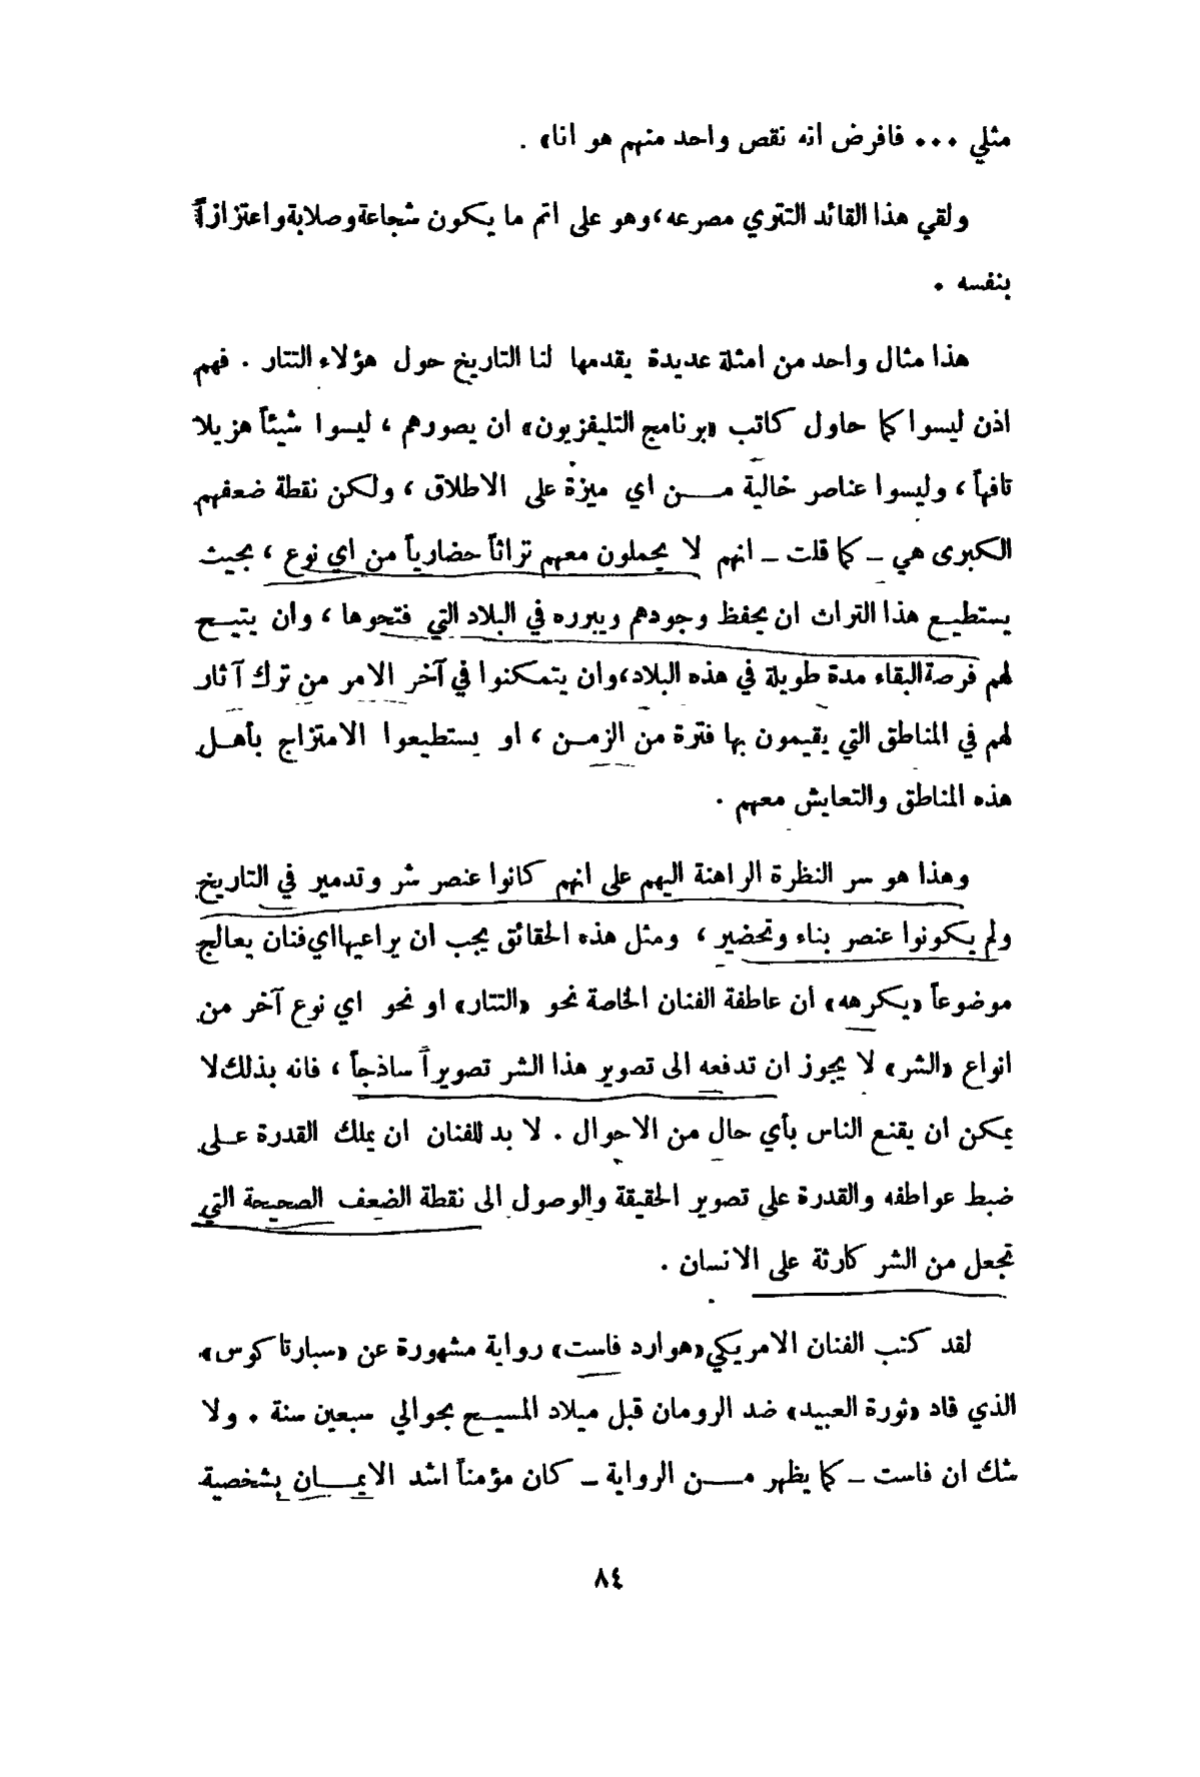 مثلي ... فافرض انه نقص واحد منهم هو انا» .
ولقي هذا القائد التتري مصرعه، وهو على اتم ما يكون شجاعة وصلابة واعتزازاً
بنفسه .
هذا مثال واحد من امثلة عديدة يقدمها لنا التاريخ حول هؤلاء التتار . فهم
اذن ليسوا كما حاول كاتب «برنامج التليفزيون» ان يصورهم ، ليسوا شيئاً هزيلا
تافهاً ، وليسوا عناصر خالية مـن اي ميزة على الاطلاق ، ولكن نقطة ضعفهم
الكبرى هي ــ كما قلت ــ انهم لا يحملون معهم تراثاً حضارياً من اي نوع ، بحيث
يستطيـع هذا التراث ان يحفظ وجودهم ويبرره في البلاد التي فتحوها ، وان يتيـح
لهم فرصة البقاء مدة طويلة في هذه البلاد، وان يتمكنوا في آخر الامر من ترك آثار
لهم في المناطق التي يقيمون بها فترة من الزمـن ، او يستطيعوا الامتزاج بأهـل
هذه المناطق والتعايش معهم .
وهذا هو سر النظرة الراهنة اليهم على انهم كانوا عنصر شر وتدمير في التاريخ
ولم يكونوا عنصر بناء وتحضير ، ومثل هذه الحقائق يجب ان يراعيها اي فنان يعالج
موضوعاً «يكرهه» ان عاطفة الفنان الخاصة نحو «التتار» او نحو اي نوع آخر من
انواع «الشر» لا يجوز ان تدفعه الى تصوير هذا الشر تصويراً ساذجاً ، فانه بذلك لا
يمكن ان يقنع الناس بأي حال من الاحوال . لا بد للفنان ان يملك القدرة عـلى
ضبط عواطفه والقدرة على تصوير الحقيقة والوصول الى نقطة الضعف الصحيحة التي
تجعل من الشر كارثة على الانسان .
لقد كتب الفنان الامريكي «هوارد فاست» رواية مشهورة عن «سبارتاكوس»
الذي قاد «ثورة العبيد» ضد الرومان قبل ميلاد المسيـح بحوالي سبعين سنة . ولا
شك ان فاست ــ كما يظهر مـن الرواية ــ كان مؤمناً اشد الايمـان بشخصية
٨٤